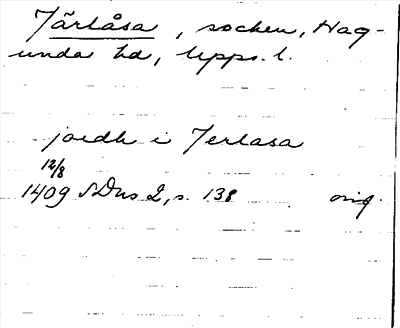 Järlåsa, socken, Hag-
unda hd, Upps. l.
jordh i Jerlasa
12/8
1409 SDns 2, s. 138 orig.